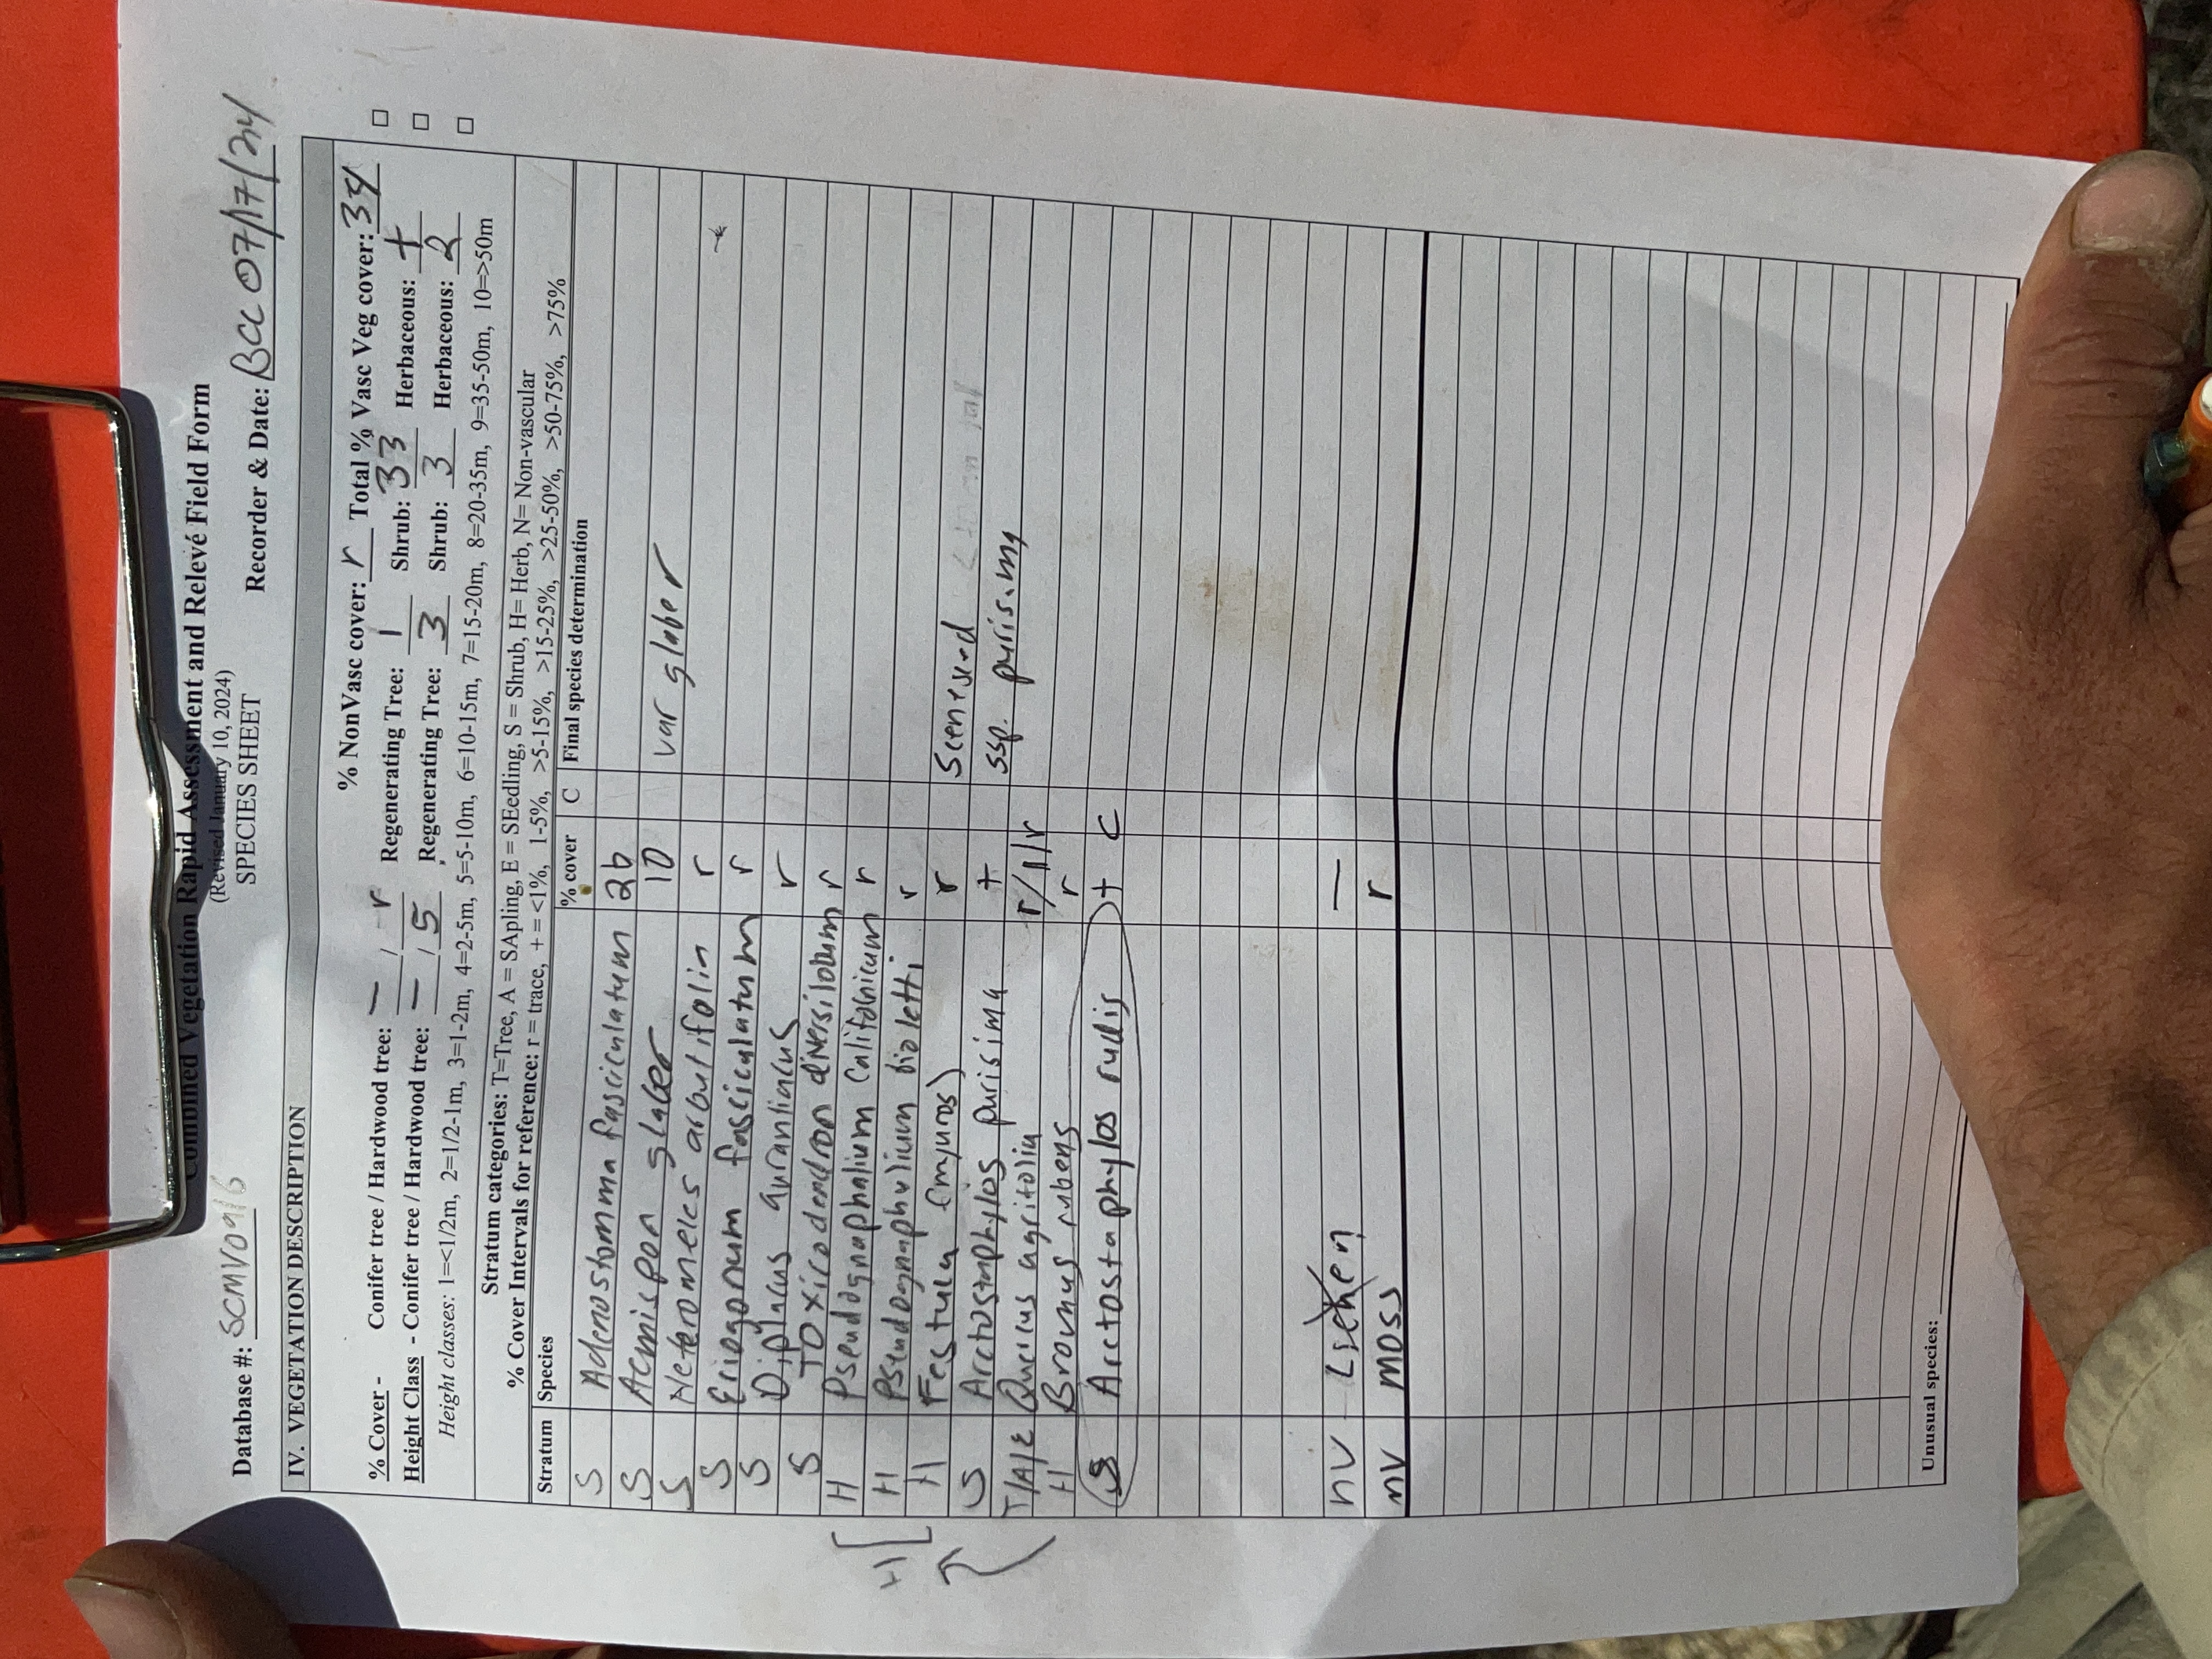 Combined Vegetation Rapid Assessment and Relevé Field Form
(Revised January 10, 2024)
SPECIES SHEET
Database #: SCMV0916 Recorder & Date: BCC 07/17/24
IV. VEGETATION DESCRIPTION
% NonVasc cover: r Total % Vasc Veg cover: 34
% Cover - Conifer tree / Hardwood tree: — / r Regenerating Tree: 1 Shrub: 33 Herbaceous: +
Height Class - Conifer tree / Hardwood tree: — / 5 Regenerating Tree: 3 Shrub: 3 Herbaceous: 2
Height classes: 1=<1/2m, 2=1/2-1m, 3=1-2m, 4=2-5m, 5=5-10m, 6=10-15m, 7=15-20m, 8=20-35m, 9=35-50m, 10=>50m
Stratum categories: T=Tree, A = SApling, E = SEedling, S = Shrub, H= Herb, N= Non-vascular
% Cover Intervals for reference: r = trace, + = <1%, 1-5%, >5-15%, >15-25%, >25-50%, >50-75%, >75%
Stratum Species % cover C Final species determination
S Adenostomma fasciculatum 26
S Acmispon glaber 10 var glaber
S Heteromeles arbutifolia r
S Eriogonum fasciculatum r
S Diplacus aurantiacus r
S Toxicodendron diversilobum r
H Pseudognaphalium Californicum r
H Pseudognaphylium bioletti r
H Festuca (myuros) r Scenesed
S Arctostaphylos purisima + ssp. purisima
T/A/E Quercus agrifolia r/1/r
H Bromus rubens r
S Arctostaphylos rudis + C
nv Lichen —
nv moss r
H
Unusual species: